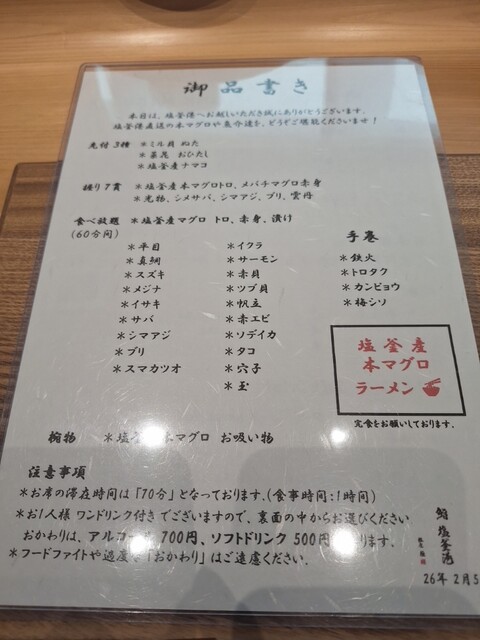 御品書き
本日は、塩釜港へお越しいただき誠にありがとうございます。
塩釜港直送の本マグロや魚介達を、どうぞご堪能くださいませ！
先付 3種 *ミル貝 ぬた
*菜花 おひたし
*塩釜産ナマコ
握り7貫 *塩釜産本マグロトロ、メバチマグロ赤身
*光物、シメサバ、シマアジ、ブリ、雲丹
食べ放題 *塩釜産マグロ トロ、赤身、漬け
(60分間)
*平目
*真鯛
*スズキ
*メジナ
*イサキ
*サバ
*シマアジ
*ブリ
*スマカツオ
*イクラ
*サーモン
*赤貝
*ツブ貝
*帆立
*赤エビ
*ソデイカ
*タコ
*穴子
*玉
手巻
*鉄火
*トロタク
*カンピョウ
*梅シソ
塩釜産
本マグロ
ラーメン
完食をお願いしております。
椀物 *塩釜 本マグロ お吸い物
注意事項
*お席の滞在時間は「70分」となっております。(食事時間:1時間)
*お1人様 ワンドリンク付きでございますので、裏面の中からお選びください
おかわりは、アルコール 700円、ソフトドリンク 500円 ります。
*フードファイトや過度な「おかわり」はご遠慮ください。
鮨 塩釜港
26年 2月5